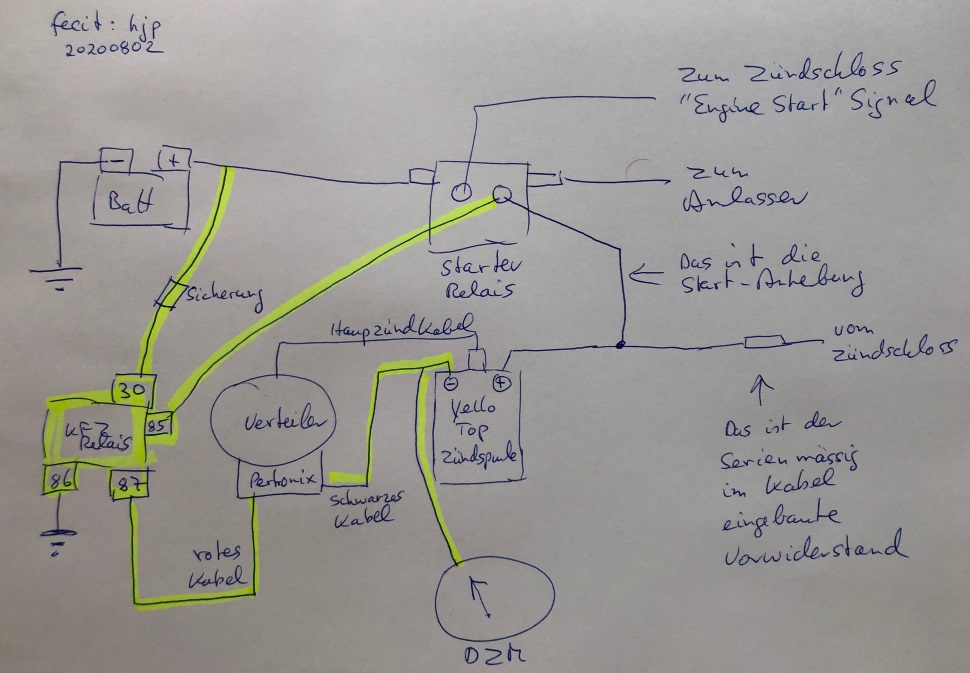 fecit: hjp
20200802
Zum Zündschloss
"Engine Start" Signal
- +
Batt
zum
Anlasser
Starter
Relais
Das ist die
Start-Anhebung
Sicherung
Hauptzündkabel
vom
Zündschloss
30
85
KFZ
Relais
86
87
Verteiler
Pertronix
- +
Yello
Top
Zündspule
Schwarzes
Kabel
rotes
Kabel
Das ist der
Serienmässig
im Kabel
eingebaute
Vorwiderstand
DZM